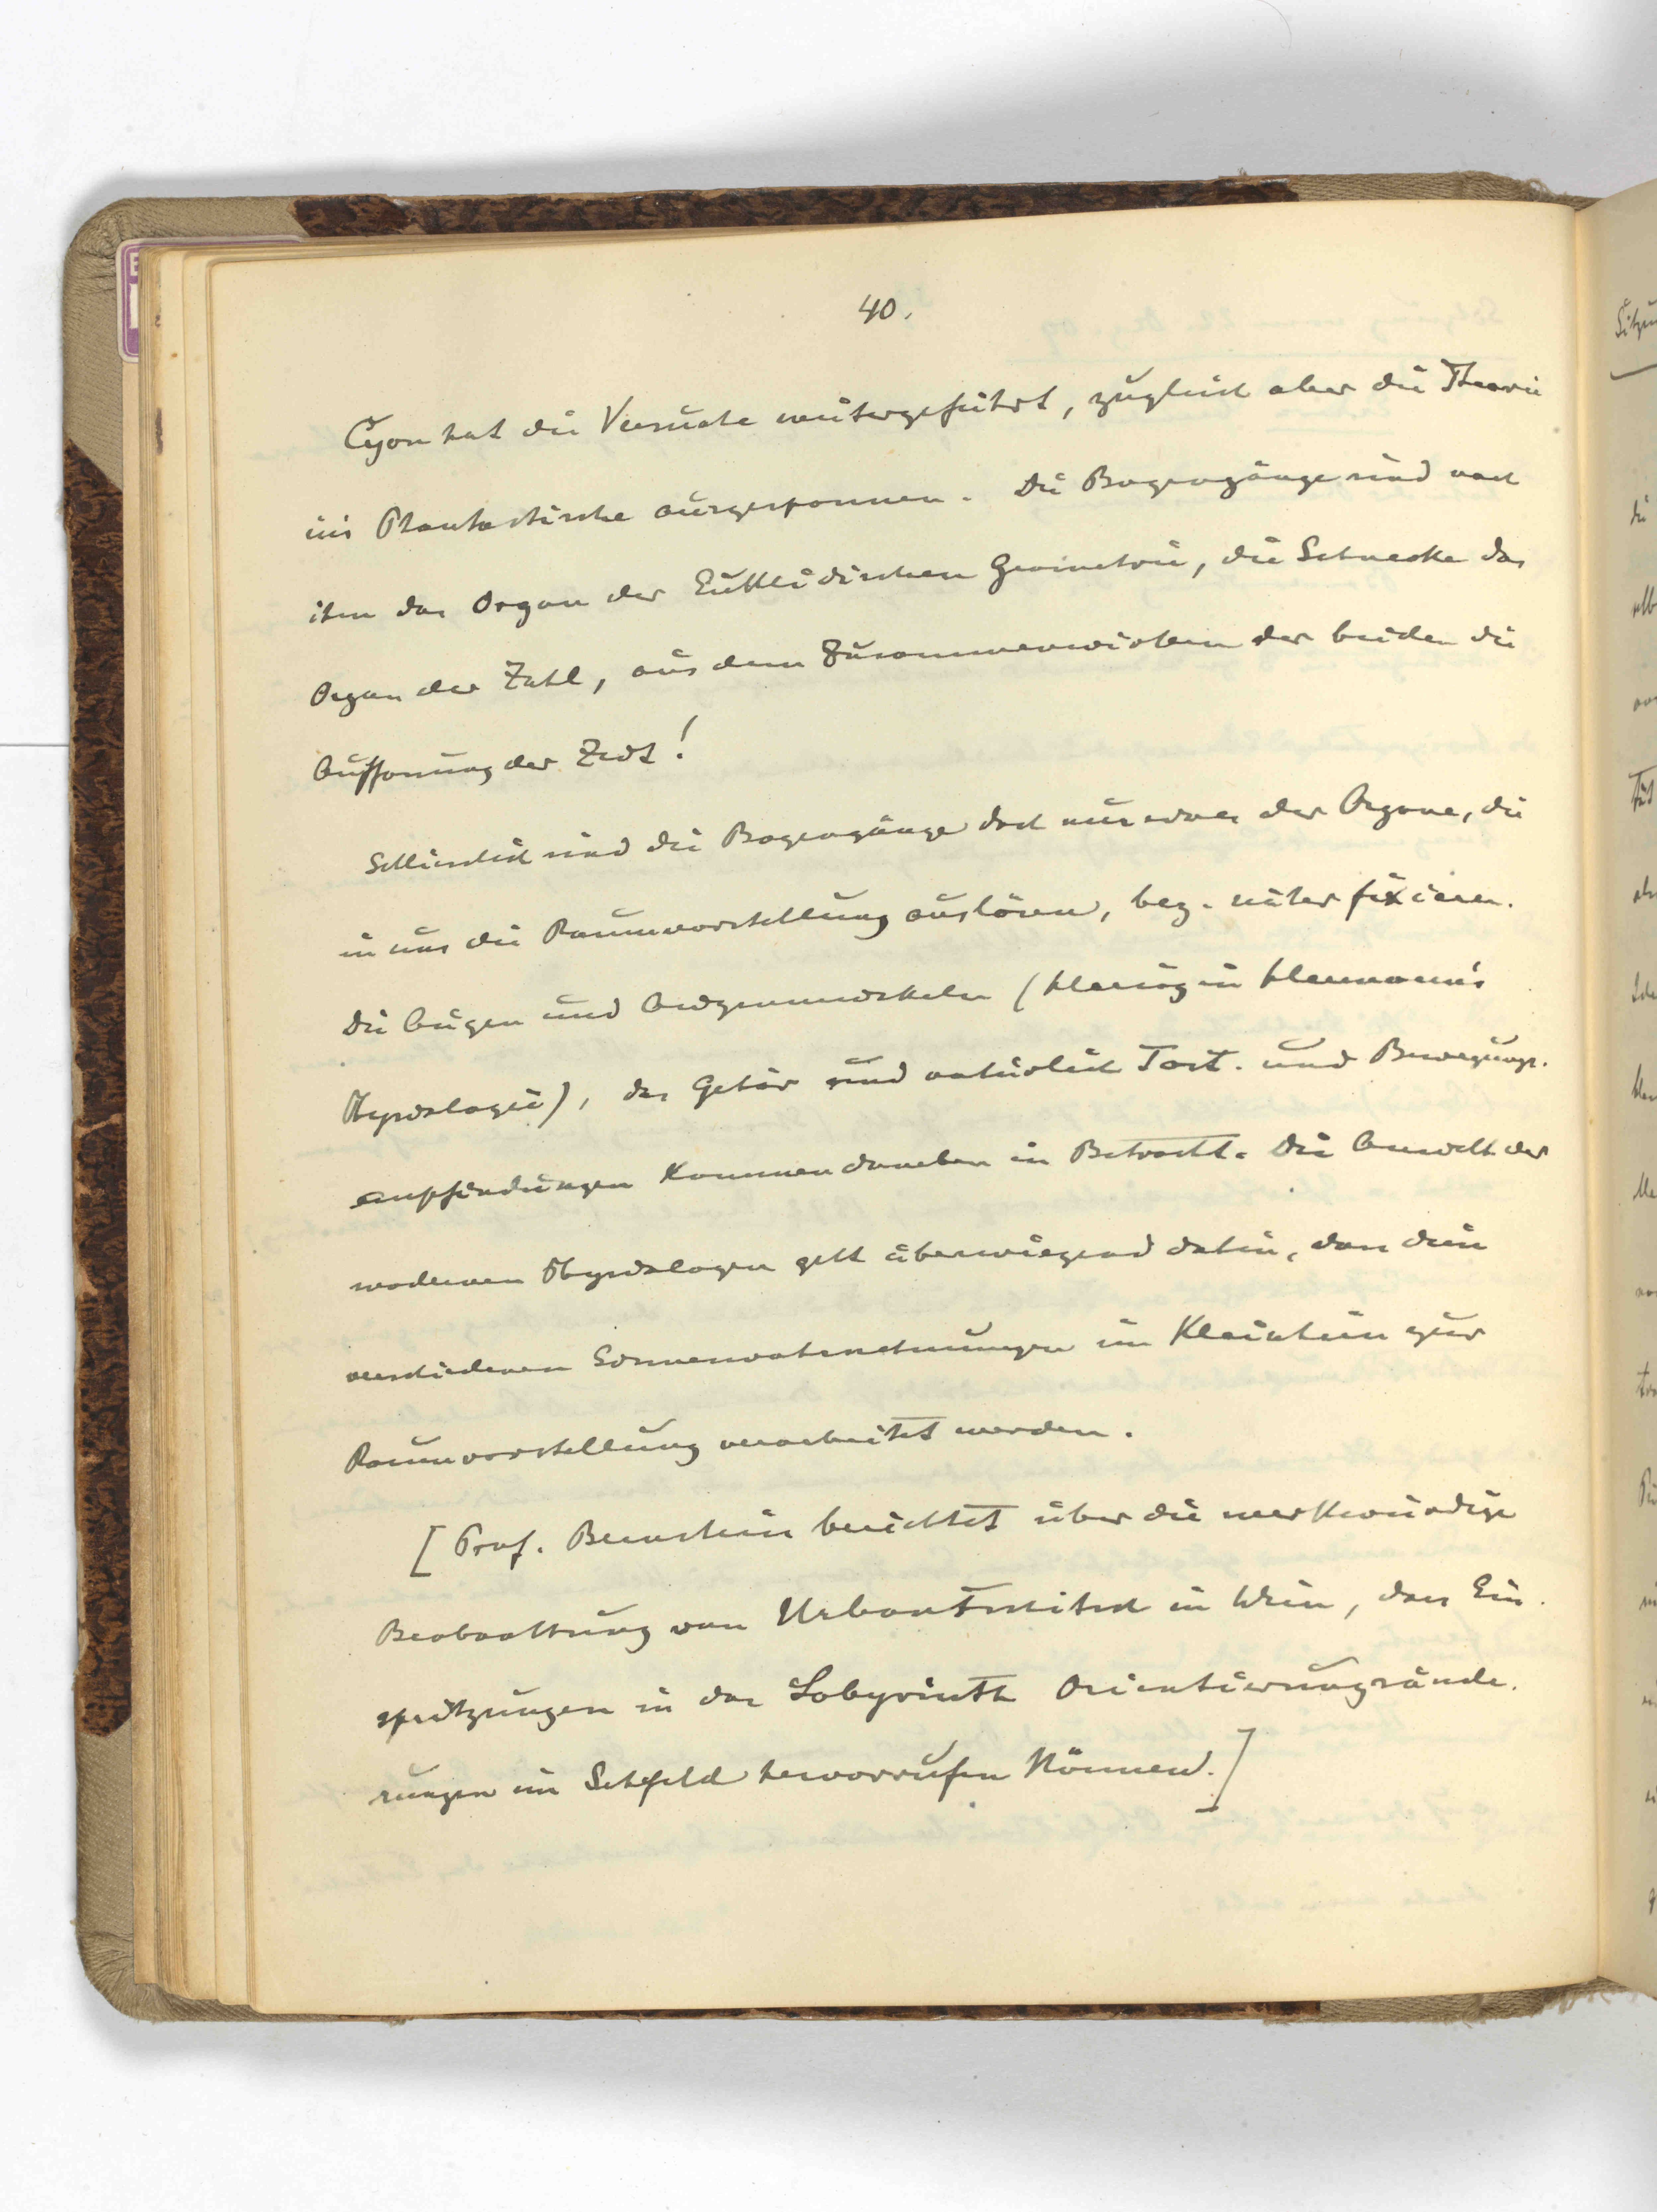 40.
Cyon hat die Versuche weitergeführt, zugleich aber die Theorie
ins Phantastische ausgesponnen. Die Bogengänge sind nach
ihm das Organ der Euklidischen Geometrie, die Schnecke das
Organ der Zahl, aus dem Zusammenwirken der beiden die
Auffassung der Zeit!
Schliesslich sind die Bogengänge doch nur eines der Organe, die
in uns die Raumvorstellung auslösen, bez. näher fixieren.
Die Augen und Augenmuskeln (Hering in Hermann's
Physiologie), das Gehör und natürlich Tast- und Bewegungs-
empfindungen kommen daneben in Betracht. Die Ansicht der
modernen Physiologen geht überwiegend dahin, dass diese
verschiedenen Sinneswahrnehmungen im Kleinhirn zur
Raumvorstellung verarbeitet werden.
[Prof. Bernstein berichtet über die merkwürdige
Beobachtung von Urbantschitsch in Wien, dass Ein-
spritzungen in das Labyrinth Orientierungsände-
rungen im Sehfeld hervorrufen können.]
Sitzu
die
selb